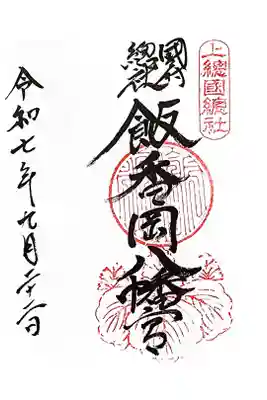 上總國總社
國府總社
飯香岡八幡宮
令和七年九月二十二日